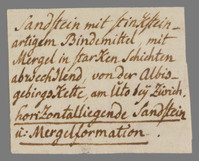 Sandstein mit stinkstein-
artigem Bindemittel, mit
Mergel in starken Schichten
abwechslend, von der Albis-
gebirgskette, am Uto bey Zürich.
horizontalliegende Sandstein
u: Mergelformation.